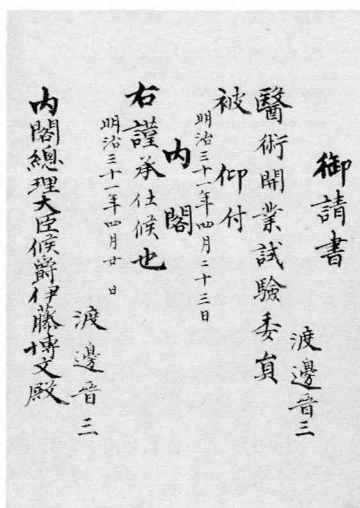 御請書
渡邊晋三
醫術開業試驗委員
被 仰付
明治三十一年四月二十三日
内閣
右謹承仕候也
明治三十一年四月廿 日
渡邊晋三
内閣總理大臣侯爵伊藤博文殿